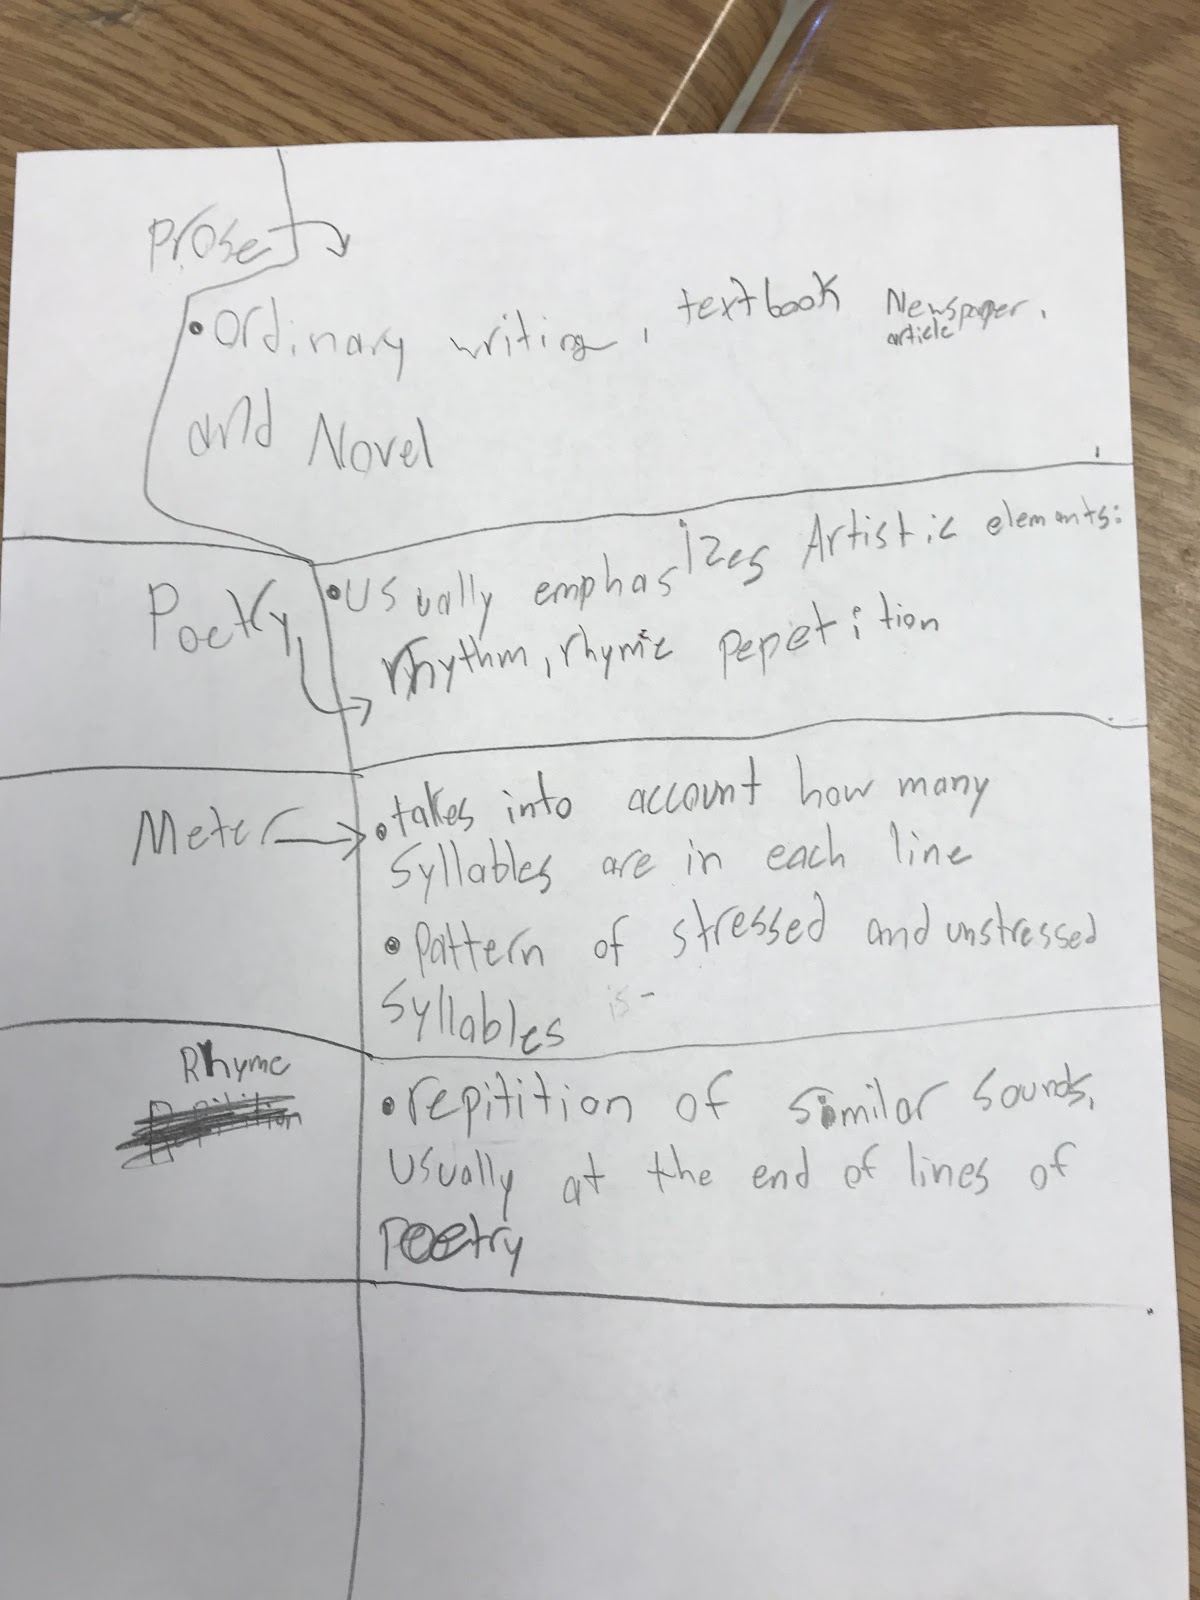 Prose
• ordinary writing, textbook Newspaper,
article
and Novel
Poetry
• Usually emphasizes Artistic elements:
rhythm, rhyme pepetition
Meter
• takes into account how many
syllables are in each line
• pattern of stressed and unstressed
syllables is-
Rhyme
• repitition of similar sounds,
usually at the end of lines of
poetry